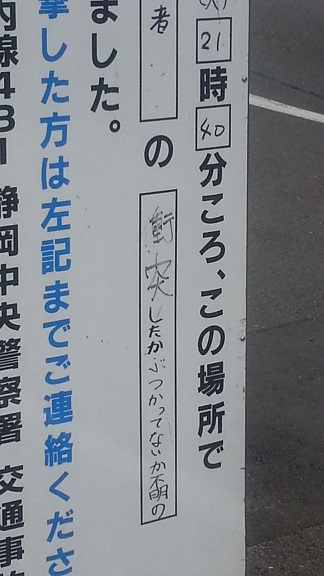 21時40分ころ、この場所で
者の衝突したかぶつかってないか不明の
ました。
撃した方は左記までご連絡くださ
内線431 静岡中央警察署 交通事